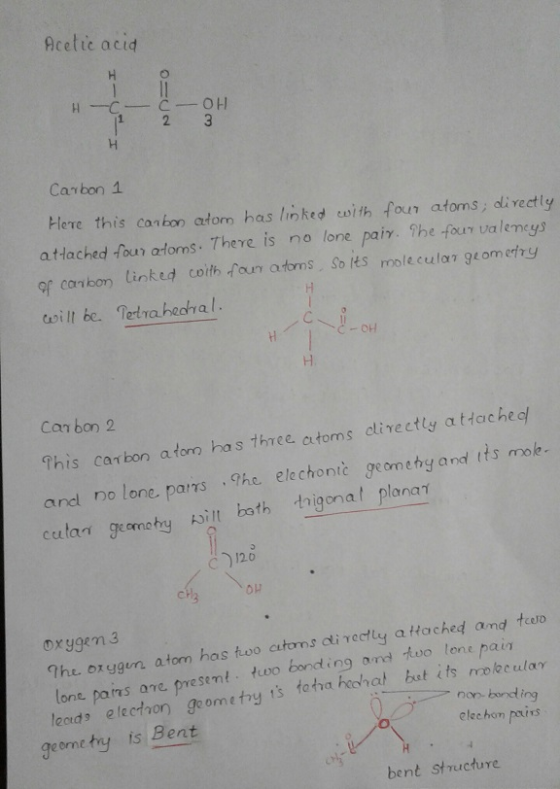 Acetic acid
H
O
H - C - C - OH
1 2 3
H
Carbon 1
Here this carbon atom has linked with four atoms; directly
attached four atoms. There is no lone pair. The four valencys
of carbon linked with four atoms, so its molecular geometry
will be Tetrahedral.
H
C
O
H C - OH
H
Carbon 2
This carbon atom has three atoms directly attached
and no lone pairs. The elechonic geometry and its mole-
cular geometry will both trigonal planar
O
C 120°
CH3 OH
Oxygen 3
The oxygen atom has two atoms directly attached and two
lone pairs are present. two bonding and two lone pair
leads electron geometry is tetrahedral but its molecular
geometry is Bent
non-bonding
elechon pairs
O
O
CH3 C H
bent structure